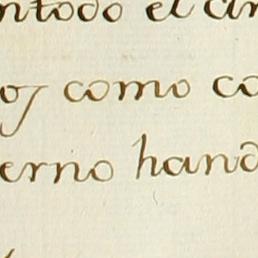 ntodo el
como co
erno hand